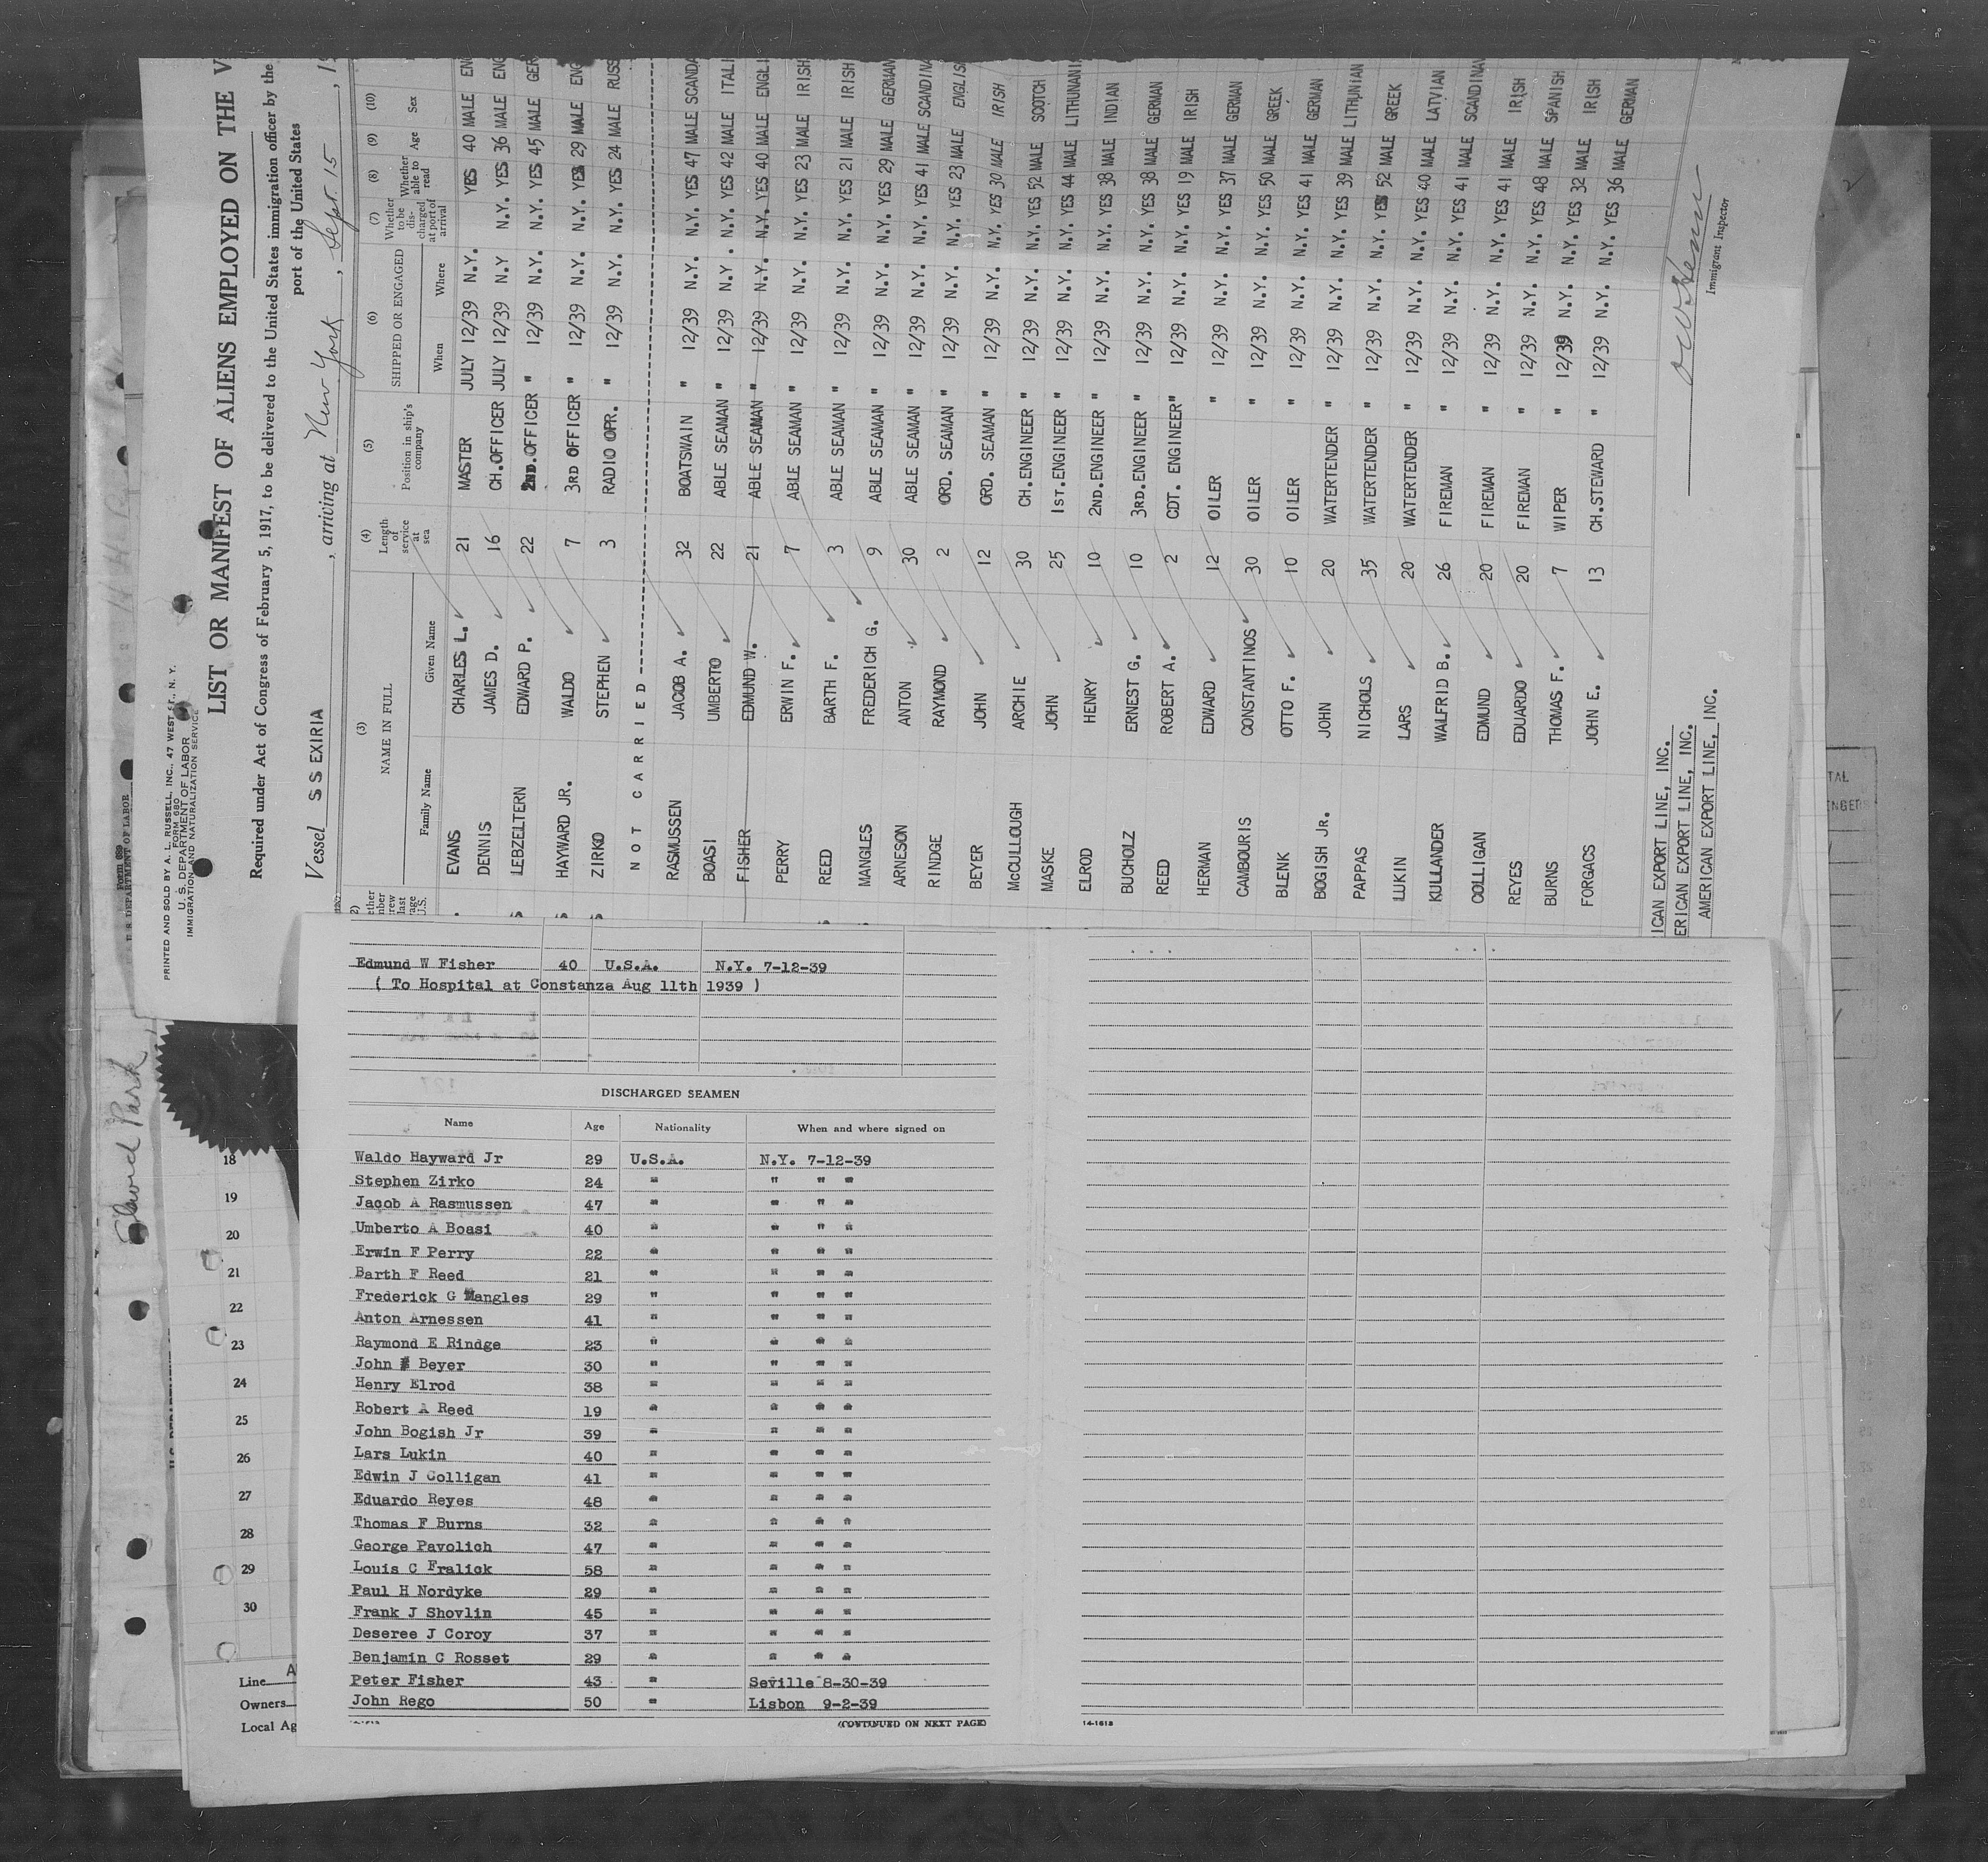 PRINTED AND SOLD BY A. L. RUSSELL, INC., 47 WEST ST., N. Y.
FORM 680
U. S. DEPARTMENT OF LABOR
IMMIGRATION AND NATURALIZATION SERVICE
LIST OR MANIFEST OF ALIENS EMPLOYED ON THE V
Required under Act of Congress of February 5, 1917, to be delivered to the United States immigration officer by the
port of the United States
Vessel S S EXIRIA, arriving at New York, Sept. 15, 19
(3) (4) (5) (6) (7) (8) (9) (10)
NAME IN FULL Length of service at sea Position in ship's company SHIPPED OR ENGAGED Whether to be discharged at port of arrival Whether able to read Age Sex
Family Name Given Name When Where
EVANS CHARLES L. 21 MASTER JULY 12/39 N.Y. YES 40 MALE ENG
DENNIS JAMES D. 16 CH.OFFICER JULY 12/39 N.Y N.Y. YES 36 MALE ENG
LEBZELTERN EDWARD P. 22 2ND.OFFICER " 12/39 N.Y. N.Y. YES 45 MALE GER
HAYWARD JR. WALDO 7 3RD OFFICER " 12/39 N.Y. N.Y. YES 29 MALE ENG
ZIRKO STEPHEN 3 RADIO OPR. " 12/39 N.Y. N.Y. YES 24 MALE RUSS
NOT CARRIED
RASMUSSEN JACOB A. 32 BOATSWAIN " 12/39 N.Y. N.Y. YES 47 MALE SCANDA
BOASI UMBERTO 22 ABLE SEAMAN " 12/39 N.Y. N.Y. YES 42 MALE ITALI
FISHER EDMUND W. 21 ABLE SEAMAN " 12/39 N.Y. N.Y. YES 40 MALE ENGLI
PERRY ERWIN F. 7 ABLE SEAMAN " 12/39 N.Y. N.Y. YES 23 MALE IRISH
REED BARTH F. 3 ABLE SEAMAN " 12/39 N.Y. N.Y. YES 21 MALE IRISH
MANGLES FREDERICH G. 9 ABLE SEAMAN " 12/39 N.Y. N.Y. YES 29 MALE GERMAN
ARNESON ANTON 30 ABLE SEAMAN " 12/39 N.Y. N.Y. YES 41 MALE SCANDINA
RINDGE RAYMOND 2 ORD. SEAMAN " 12/39 N.Y. N.Y. YES 23 MALE ENGLISH
BEYER JOHN 12 ORD. SEAMAN " 12/39 N.Y. N.Y. YES 30 MALE IRISH
McCULLOUGH ARCHIE 30 CH.ENGINEER " 12/39 N.Y. N.Y. YES 52 MALE SCOTCH
MASKE JOHN 25 1ST.ENGINEER " 12/39 N.Y. N.Y. YES 44 MALE LITHUNANI
ELROD HENRY 10 2ND.ENGINEER " 12/39 N.Y. N.Y. YES 38 MALE INDIAN
BUCHOLZ ERNEST G. 10 3RD.ENGINEER " 12/39 N.Y. N.Y. YES 38 MALE GERMAN
REED ROBERT A. 2 CDT. ENGINEER " 12/39 N.Y. N.Y. YES 19 MALE IRISH
HERMAN EDWARD 12 OILER " 12/39 N.Y. N.Y. YES 37 MALE GERMAN
CAMBOURIS CONSTANTINOS 30 OILER " 12/39 N.Y. N.Y. YES 50 MALE GREEK
BLENK OTTO F. 10 OILER " 12/39 N.Y. N.Y. YES 41 MALE GERMAN
BOGISH JR. JOHN 20 WATERTENDER " 12/39 N.Y. N.Y. YES 39 MALE LITHUNIAN
PAPPAS NICHOLS 35 WATERTENDER " 12/39 N.Y. N.Y. YES 52 MALE GREEK
LUKIN LARS 20 WATERTENDER " 12/39 N.Y. N.Y. YES 40 MALE LATVIAN
KULLANDER WALFRID B. 26 FIREMAN " 12/39 N.Y. N.Y. YES 41 MALE SCANDINAV
COLLIGAN EDMUND 20 FIREMAN " 12/39 N.Y. N.Y. YES 41 MALE IRISH
REYES EDUARDO 20 FIREMAN " 12/39 N.Y. N.Y. YES 48 MALE SPANISH
BURNS THOMAS F. 7 WIPER " 12/39 N.Y. N.Y. YES 32 MALE IRISH
FORGACS JOHN E. 13 CH.STEWARD " 12/39 N.Y. N.Y. YES 36 MALE GERMAN
Immigrant Inspector
ICAN EXPORT LINE, INC.
ERICAN EXPORT LINE, INC.
AMERICAN EXPORT LINE, INC.
Edmund W Fisher 40 U.S.A. N.Y. 7-12-39
( To Hospital at Constanza Aug 11th 1939 )
DISCHARGED SEAMEN
Name Age Nationality When and where signed on
Waldo Hayward Jr 29 U.S.A. N.Y. 7-12-39
Stephen Zirko 24 " " " "
Jacob A Rasmussen 47 " " " "
Umberto A Boasi 40 " " " "
Erwin F Perry 22 " " " "
Barth F Reed 21 " " " "
Frederick G Mangles 29 " " " "
Anton Arnessen 41 " " " "
Raymond E Rindge 23 " " " "
John Beyer 30 " " " "
Henry Elrod 38 " " " "
Robert A Reed 19 " " " "
John Bogish Jr 39 " " " "
Lars Lukin 40 " " " "
Edwin J Colligan 41 " " " "
Eduardo Reyes 48 " " " "
Thomas F Burns 32 " " " "
George Pavolich 47 " " " "
Louis C Fralick 58 " " " "
Paul H Nordyke 29 " " " "
Frank J Shovlin 45 " " " "
Deseree J Coroy 37 " " " "
Benjamin C Rosset 29 " " " "
Peter Fisher 43 " Seville 8-30-39
John Rego 50 " Lisbon 9-2-39
(CONTINUED ON NEXT PAGE)
14-1613
18
19
20
21
22
23
24
25
26
27
28
29
30
Line A
Owners
Local Ag